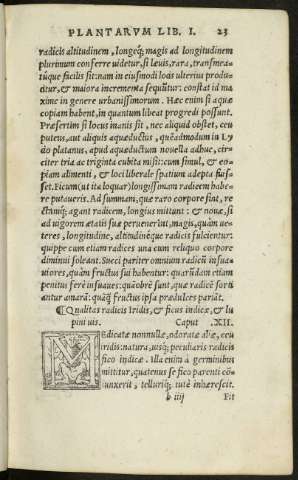 PLANTARVM LIB. I. 23
radicis altitudinem, longeq́; magis ad longitudinem
plurimum conferre uidetur, si leuis, rara, transmea-
túque facilis sit: nam in eiusmodi loca ulterius produ-
citur, & maiora incrementa sequũtur: constat id ma
xime in genere urbanissimorum. Hæc enim si aquæ
copiam habent, in quantum libeat progredi possunt.
Præsertim si locus inanis sit, nec aliquid obstet, ceu
puteus, aut aliquis aquæductus, quẽadmodum in Ly
ꝗio platanus, apud aquæductum nouella adhuc, cir-
citer tria ac triginta cubita misit: cum simul, & co-
piam alimenti, & loci liberale spatium adepta fuis-
set. Ficum (ut ita loquar) longissimam radicem habe-
re putaueris. Ad summam, quæ raro corpore sint, re
ctámq; agant radicem, longius mittunt: & nouæ, si
ad uigorem ætatis suæ peruenerint, magis, quàm ue-
teres, longitudine, altitudinéque radicis fulcientur:
quippe cum etiam radices una cum reliquo corpore
diminui soleant. Succi pariter omnium radicũ insua-
uiores, quàm fructus sui habentur: quarũdam etiam
penitus ferè insuaues: quãobrè sunt, quæ radicẽ sorti
antur amarã: quãq̃ fructus ipsa prædulces pariãt.
¶Qualitas radicis Iridis, & ficus indicæ, & lu
pini uis. Caput .XII.
MEdicatæ nonnullæ, odoratæ aliæ, ceu
iridis: natura, usuq; peculiaris radicis
fico indicæ. Illa enim à germinibus
mittitur, quatenus se fico parenti cõ-
iunxerit, tellurịq; tutè inhærescit.
b iiij Fit